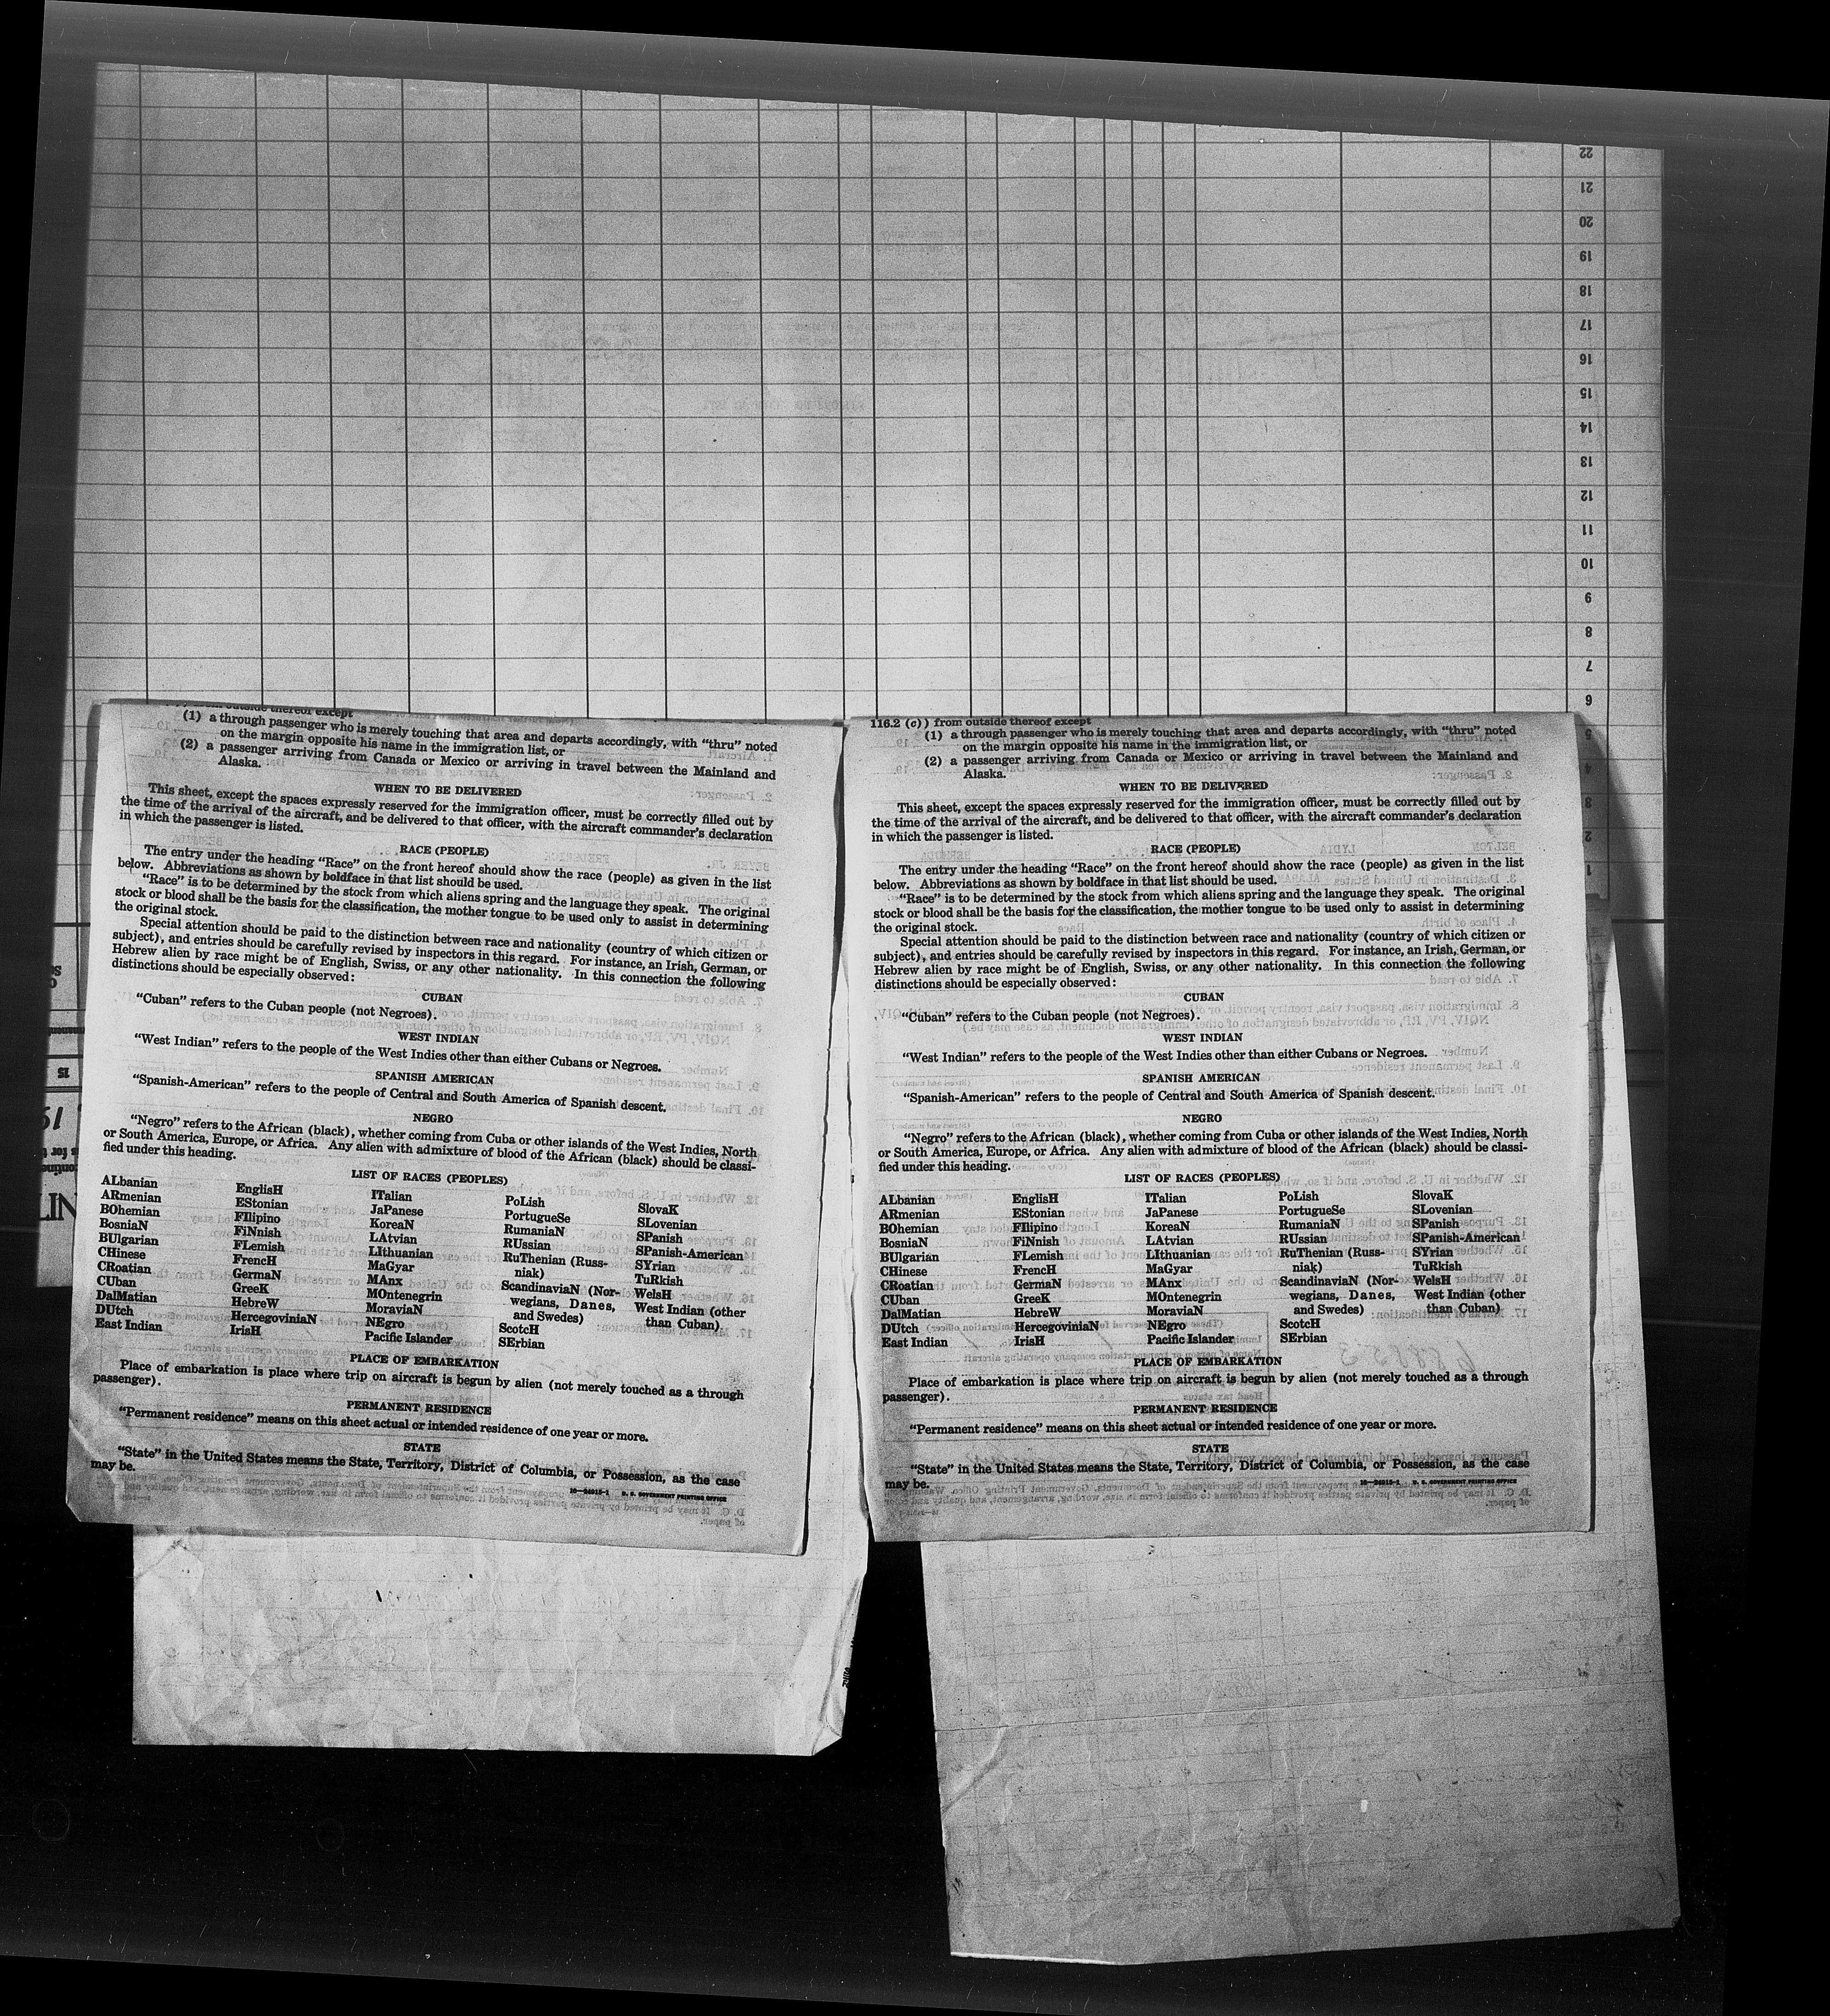 22
21
20
19
18
17
16
15
14
13
12
11
10
9
8
7
6
outside thereof except
(1) a through passenger who is merely touching that area and departs accordingly, with “thru” noted
on the margin opposite his name in the immigration list, or
(2) a passenger arriving from Canada or Mexico or arriving in travel between the Mainland and
Alaska.
WHEN TO BE DELIVERED
This sheet, except the spaces expressly reserved for the immigration officer, must be correctly filled out by
the time of the arrival of the aircraft, and be delivered to that officer, with the aircraft commander’s declaration
in which the passenger is listed.
RACE (PEOPLE)
The entry under the heading “Race” on the front hereof should show the race (people) as given in the list
below. Abbreviations as shown by boldface in that list should be used.
“Race” is to be determined by the stock from which aliens spring and the language they speak. The original
stock or blood shall be the basis for the classification, the mother tongue to be used only to assist in determining
the original stock.
Special attention should be paid to the distinction between race and nationality (country of which citizen or
subject), and entries should be carefully revised by inspectors in this regard. For instance, an Irish, German, or
Hebrew alien by race might be of English, Swiss, or any other nationality. In this connection the following
distinctions should be especially observed:
CUBAN
“Cuban” refers to the Cuban people (not Negroes).
WEST INDIAN
“West Indian” refers to the people of the West Indies other than either Cubans or Negroes.
SPANISH AMERICAN
“Spanish-American” refers to the people of Central and South America of Spanish descent.
NEGRO
“Negro” refers to the African (black), whether coming from Cuba or other islands of the West Indies, North
or South America, Europe, or Africa. Any alien with admixture of blood of the African (black) should be classi-
fied under this heading.
LIST OF RACES (PEOPLES)
ALbanian
ARmenian
BOhemian
BosniaN
BUlgarian
CHinese
CRoatian
CUban
DalMatian
DUtch
East Indian
EnglisH
EStonian
FIlipino
FiNnish
FLemish
FrencH
GermaN
GreeK
HebreW
HercegoviniaN
IrisH
ITalian
JaPanese
KoreaN
LAtvian
LIthuanian
MaGyar
MAnx
MOntenegrin
MoraviaN
NEgro
Pacific Islander
PoLish
PortugueSe
RumaniaN
RUssian
RuThenian (Russ-
niak)
ScandinaviaN (Nor-
wegians, Danes,
and Swedes)
ScotcH
SErbian
SlovaK
SLovenian
SPanish
SPanish-American
SYrian
TuRkish
WelsH
West Indian (other
than Cuban)
PLACE OF EMBARKATION
Place of embarkation is place where trip on aircraft is begun by alien (not merely touched as a through
passenger).
PERMANENT RESIDENCE
“Permanent residence” means on this sheet actual or intended residence of one year or more.
STATE
“State” in the United States means the State, Territory, District of Columbia, or Possession, as the case
may be.
16—24915-1 U. S. GOVERNMENT PRINTING OFFICE
116.2 (c)) from outside thereof except
(1) a through passenger who is merely touching that area and departs accordingly, with “thru” noted
on the margin opposite his name in the immigration list, or
(2) a passenger arriving from Canada or Mexico or arriving in travel between the Mainland and
Alaska.
WHEN TO BE DELIVERED
This sheet, except the spaces expressly reserved for the immigration officer, must be correctly filled out by
the time of the arrival of the aircraft, and be delivered to that officer, with the aircraft commander’s declaration
in which the passenger is listed.
RACE (PEOPLE)
The entry under the heading “Race” on the front hereof should show the race (people) as given in the list
below. Abbreviations as shown by boldface in that list should be used.
“Race” is to be determined by the stock from which aliens spring and the language they speak. The original
stock or blood shall be the basis for the classification, the mother tongue to be used only to assist in determining
the original stock.
Special attention should be paid to the distinction between race and nationality (country of which citizen or
subject), and entries should be carefully revised by inspectors in this regard. For instance, an Irish, German, or
Hebrew alien by race might be of English, Swiss, or any other nationality. In this connection the following
distinctions should be especially observed:
CUBAN
“Cuban” refers to the Cuban people (not Negroes).
WEST INDIAN
“West Indian” refers to the people of the West Indies other than either Cubans or Negroes.
SPANISH AMERICAN
“Spanish-American” refers to the people of Central and South America of Spanish descent.
NEGRO
“Negro” refers to the African (black), whether coming from Cuba or other islands of the West Indies, North
or South America, Europe, or Africa. Any alien with admixture of blood of the African (black) should be classi-
fied under this heading.
LIST OF RACES (PEOPLES)
ALbanian
ARmenian
BOhemian
BosniaN
BUlgarian
CHinese
CRoatian
CUban
DalMatian
DUtch
East Indian
EnglisH
EStonian
FIlipino
FiNnish
FLemish
FrencH
GermaN
GreeK
HebreW
HercegoviniaN
IrisH
ITalian
JaPanese
KoreaN
LAtvian
LIthuanian
MaGyar
MAnx
MOntenegrin
MoraviaN
NEgro
Pacific Islander
PoLish
PortugueSe
RumaniaN
RUssian
RuThenian (Russ-
niak)
ScandinaviaN (Nor-
wegians, Danes,
and Swedes)
ScotcH
SErbian
SlovaK
SLovenian
SPanish
SPanish-American
SYrian
TuRkish
WelsH
West Indian (other
than Cuban)
PLACE OF EMBARKATION
Place of embarkation is place where trip on aircraft is begun by alien (not merely touched as a through
passenger).
PERMANENT RESIDENCE
“Permanent residence” means on this sheet actual or intended residence of one year or more.
STATE
“State” in the United States means the State, Territory, District of Columbia, or Possession, as the case
may be.
16—24915-1 U. S. GOVERNMENT PRINTING OFFICE